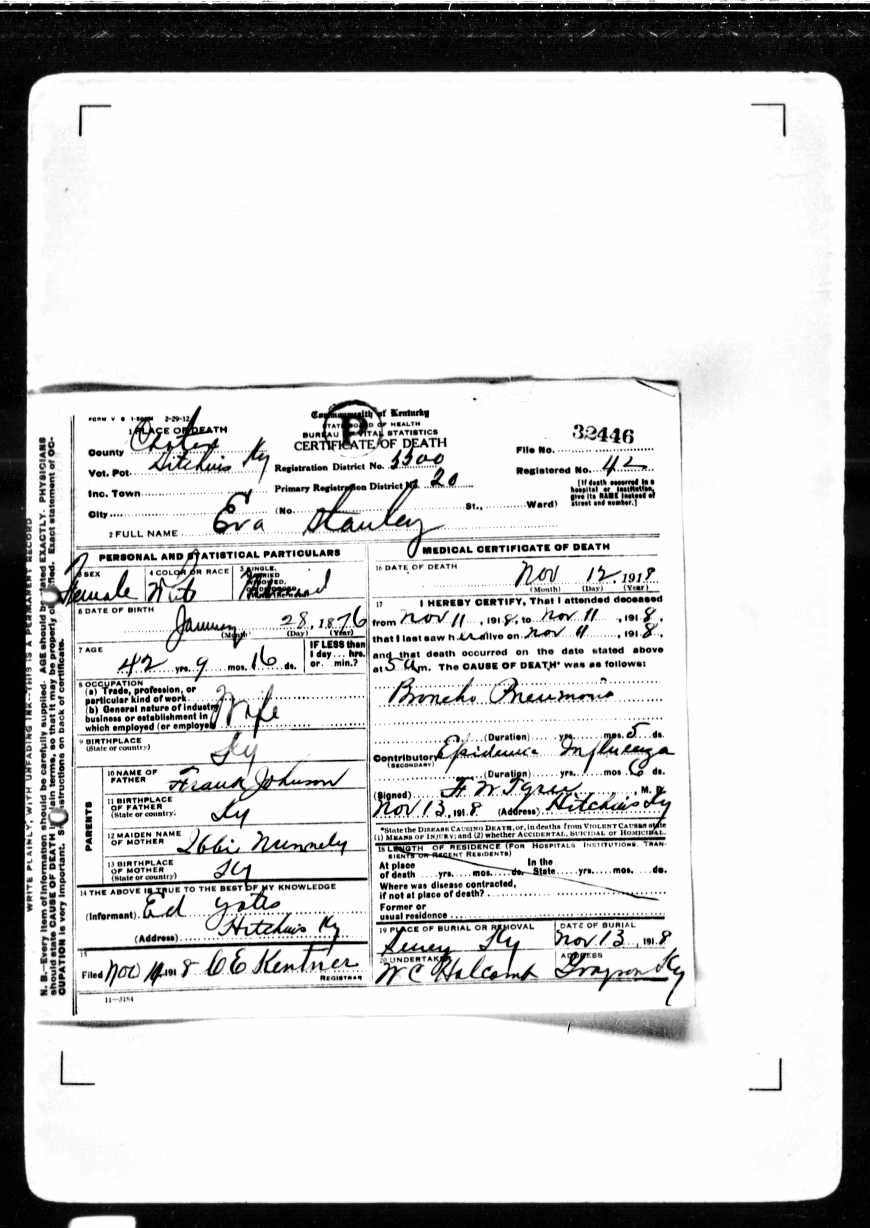 FORM V S 2-29-12
Commonwealth of Kentucky
STATE BOARD OF HEALTH
BUREAU VITAL STATISTICS
CERTIFICATE OF DEATH
1 PLACE OF DEATH
County Carter
Vot. Pct. Hitchins Ky
Inc. Town
City
Registration District No.
Primary Registration District No. 20
(No. St., Ward)
File No. 32446
Registered No. 42
[If death occurred in a hospital or institution, give its NAME instead of street and number.]
2 FULL NAME Eva Stanley
PERSONAL AND STATISTICAL PARTICULARS
3 SEX Female
4 COLOR OR RACE
5 SINGLE, MARRIED, WIDOWED, Married
6 DATE OF BIRTH January 28, 1876
(Month) (Day) (Year)
7 AGE 42 yrs. 9 mos. 16 ds.
IF LESS than 1 day ... hrs. or min.?
8 OCCUPATION
(a) Trade, profession, or particular kind of work
(b) General nature of industry business or establishment in which employed (or employer Wife
9 BIRTHPLACE
(State or country) Ky
PARENTS
10 NAME OF FATHER Frank Johnson
11 BIRTHPLACE OF FATHER
(State or country) Ky
12 MAIDEN NAME OF MOTHER
13 BIRTHPLACE OF MOTHER
(State or country) Ky
14 THE ABOVE IS TRUE TO THE BEST OF MY KNOWLEDGE
(Informant) Ed Yates
(Address) Hitchins Ky
15
Filed Nov 14 1918 C E Kentner
REGISTRAR
11-3184
MEDICAL CERTIFICATE OF DEATH
16 DATE OF DEATH Nov 12, 1918
(Month) (Day) (Year)
17 I HEREBY CERTIFY, That I attended deceased
from Nov 11, 1918, to Nov 11, 1918,
that I last saw her alive on Nov 11, 1918,
and that death occurred on the date stated above
at 5 a m. The CAUSE OF DEATH* was as follows:
Broncho Pneumonia
(Duration) yrs. mos. 5 ds.
Contributory Epidemic Influenza
(SECONDARY)
(Duration) yrs. mos. 6 ds.
(Signed) M. D.
Nov 13, 1918 (Address) Hitchins Ky
*State the DISEASE CAUSING DEATH, or, in deaths from VIOLENT CAUSES state
(1) MEANS OF INJURY; and (2) whether ACCIDENTAL, SUICIDAL or HOMICIDAL.
18 LENGTH OF RESIDENCE (FOR HOSPITALS INSTITUTIONS, TRANSIENTS OR RECENT RESIDENTS)
At place of death yrs. mos. ds. In the State yrs. mos. ds.
Where was disease contracted, if not at place of death?
Former or usual residence
19 PLACE OF BURIAL OR REMOVAL Ky
DATE OF BURIAL Nov 13, 1918
20 UNDERTAKER W C Holcomb
ADDRESS Grayson Ky
WRITE PLAINLY, WITH UNFADING INK—THIS IS A PERMANENT RECORD
N. B.—Every item of information should be carefully supplied. AGE should be stated EXACTLY. PHYSICIANS
should state CAUSE OF DEATH in plain terms, so that it may be properly classified. Exact statement of OC-
CUPATION is very important. See instructions on back of certificate.